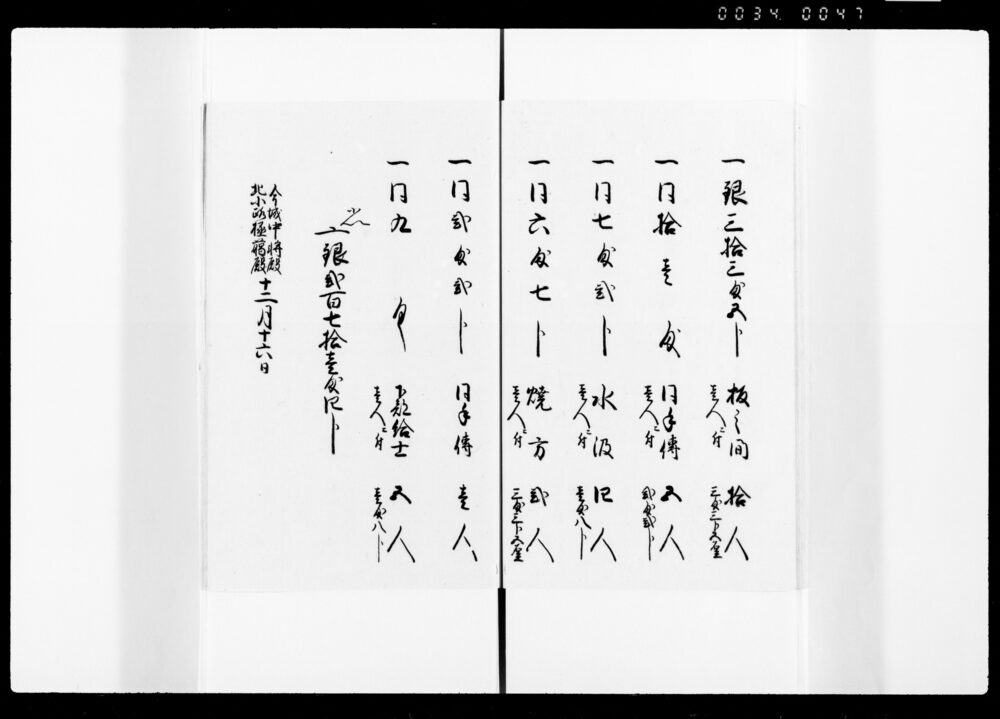 0034 0047
一銀三拾三匁五分 板之間 拾人
壱人ニ付 三匁三分五厘
一同拾壱匁 同手傳 五人
壱人ニ付 弐匁弐分
一同七匁弐分 水汲 四人
壱人ニ付 壱匁八分
一同六匁七分 焼方 弐人
壱人ニ付 三匁三分五厘
一同弐匁弐分 同手傳 壱人
一同九匁 給士 五人
壱人ニ付 壱匁八分
銀弐百七拾壱匁四分
今城中将殿
北小路極臈殿
十二月十六日